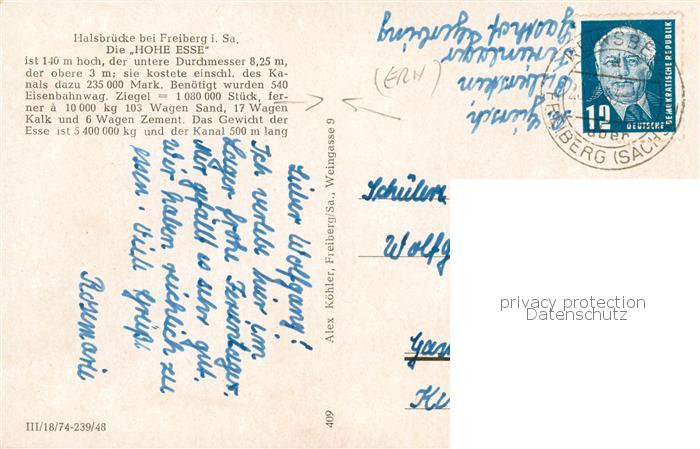 Halsbrücke bei Freiberg i. Sa.
Die „HOHE ESSE"
ist 140 m hoch, der untere Durchmesser 8,25 m,
der obere 3 m; sie kostete einschl. des Ka-
nals dazu 235 000 Mark. Benötigt wurden 540
Eisenbahnwag. Ziegel = 1 080 000 Stück, fer-
ner à 10 000 kg 103 Wagen Sand, 17 Wagen
Kalk und 6 Wagen Zement. Das Gewicht der
Esse ist 5 400 000 kg und der Kanal 500 m lang
Lieber Wolfgang!
Ich verlebe hier im
Lager frohe Ferientage.
Mir gefällt es sehr gut.
Wir haben reichlich zu
essen. Viele Grüße
Rosemarie
III/18/74-239/48
409
Alex Köhler, Freiberg/Sa., Weingasse 9
(ERH)
Ferienlager
Gasthof
12
DEUTSCHE
DEMOKRATISCHE REPUBLIK
über
FREIBERG (SACHS
Schüler
Wolfg
privacy protection
Datenschutz